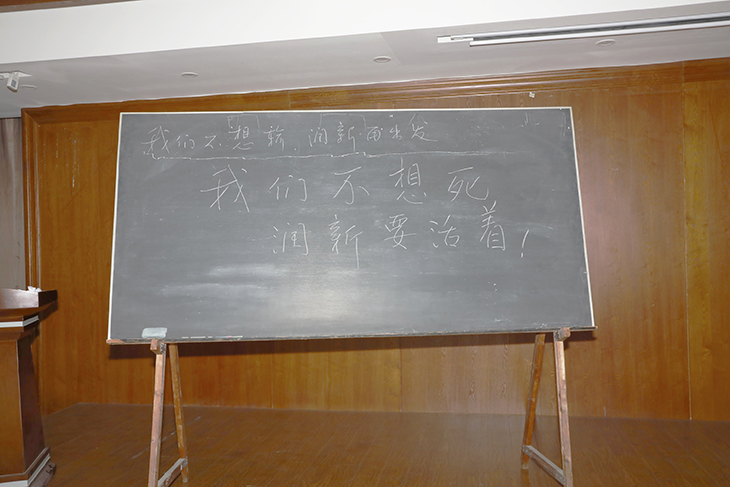 我们不想散，润新再出发
我们不想死
润新要活着！